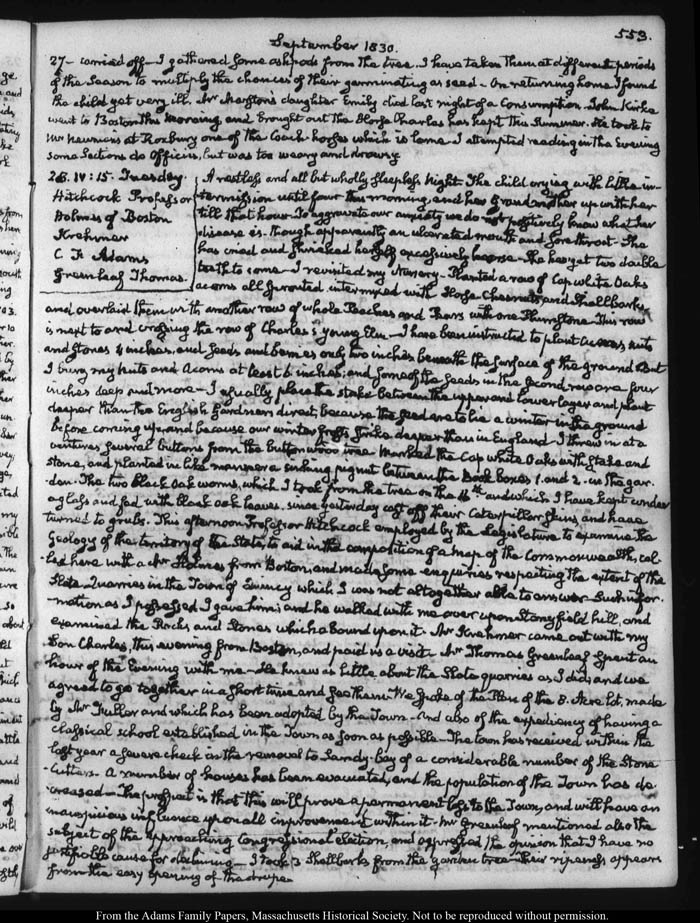 September 1830.
553.
27- carried off. I gathered some ashpods from the tree. I have taken them at different periods
of the Season to multiply the chances of their germinating as seed. On returning home I found
the child yet very ill. Mr Marston's daughter Emily died last night of a Consumption. John Kirke
went to Boston this morning and brought out the Horse Charles has kept this Summer. He took to
Mr Newman's at Roxbury one of the Coach horses which is lame. I attempted reading in the Evening
some Sections de Officiis, but was too weary and drowsy.
28. IV:15. Tuesday.
Hitchcock Professor
Holmes of Boston
Krehmer
C F Adams
Greenleaf Thomas.
A restless and all but wholly sleepless Night. The child crying with little in-
termission until four this morning, and her Grandmother up with her
till that hour. To aggravate our anxiety we do not positively know what her
disease is. though apparently an ulcerated mouth and sore throat. She
has cried and shrieked herself excessively hoarse. She has yet two double
teeth to come. I revisited my Nursery. Planted a row of Cap white Oaks
acorns all sprouted intermixed with Horse Chesnuts, and Shellbarks,
and overlaid them with another row of whole Peaches and Pears with one Plumstone. This row
is next to and crossing the row of Charles's young Elm. I have been instructed to plant acorns nuts
and stones 4 inches, and seeds and berries only two inches beneath the surface of the ground. But
I bury my nuts and Acorns at least 6 inches; and some of the seeds in the second row are four
inches deep and more. I usually place the stake between the upper and lower layer and plant
deeper than the English Gardeners direct, because the seed are to lie a winter in the ground
before coming up, and because our winter frosts strike deeper than in England. I threw in at a
venture, several buttons from the buttonwood tree. Marked the Cap white Oaks with Stake and
Stone, and planted in like manner a pignut between the Book boxes 1. and 2. in the gar-
den. The two black Oak worms, which I took from the tree on the and which I have kept under
a glass and fed with black oak leaves, since yesterday cast off their Caterpillar skins and have
turned to grubs. This afternoon Professor Hitchcock employed by the Legislature to examine the
Geology of the territory of the State, to aid in the composition of a map of the Commonwealth, cal-
led here with a Mr Holmes from Boston, and made some enquiries respecting the extent of the
Slate Quarries in the Town of Quincy which I was not altogether able to answer. Such infor-
mation as I possessed I gave him; and he walked with me over upon Stonyfield hill, and
examined the Rocks and Stones which abound upon it. Mr Krehmer came out with my
Son Charles, this evening from Boston, and paid us a visit. Mr Thomas Greenleaf spent an
hour of the Evening with me. He knew as little about the Slate quarries as I did, and we
agreed to go together in a short time and see them. We spoke of the Plan of the 8. Acre lot, made
by Mr Fuller and which has been adopted by the Town. And also of the expediency of having a
classical school established in the Town as soon as possible. The town has received within the
last year a severe check in the removal to Sandy-bay of a considerable number of the Stone
Cutters. A number of houses has been evacuated, and the population of the Town has de-
creased. The prospect is that this will prove a permanent loss to the Town, and will have an
inauspicious influence upon all improvement within it. Mr Greenleaf mentioned also the
subject of the approaching Congressional Election, and expressed the opinion that I have no
justifiable cause for declining. I took 3 Shellbarks from the garden tree. Their ripeness appears
from the easy opening of the drupe.
From the Adams Family Papers, Massachusetts Historical Society. Not to be reproduced without permission.